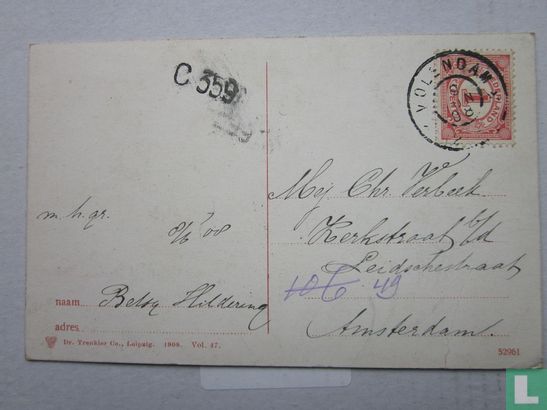 C 359
VOLENDAM
NEDERLAND
m. h. gr.
8/6 '08
naam Betsy Hildering
adres
Dr. Trenkler Co., Leipzig. 1908. Vol. 47.
Mej Chr. Verbeek
Kerkstraat b/d
Leidschestraat
106 49
Amsterdam.
52961
L